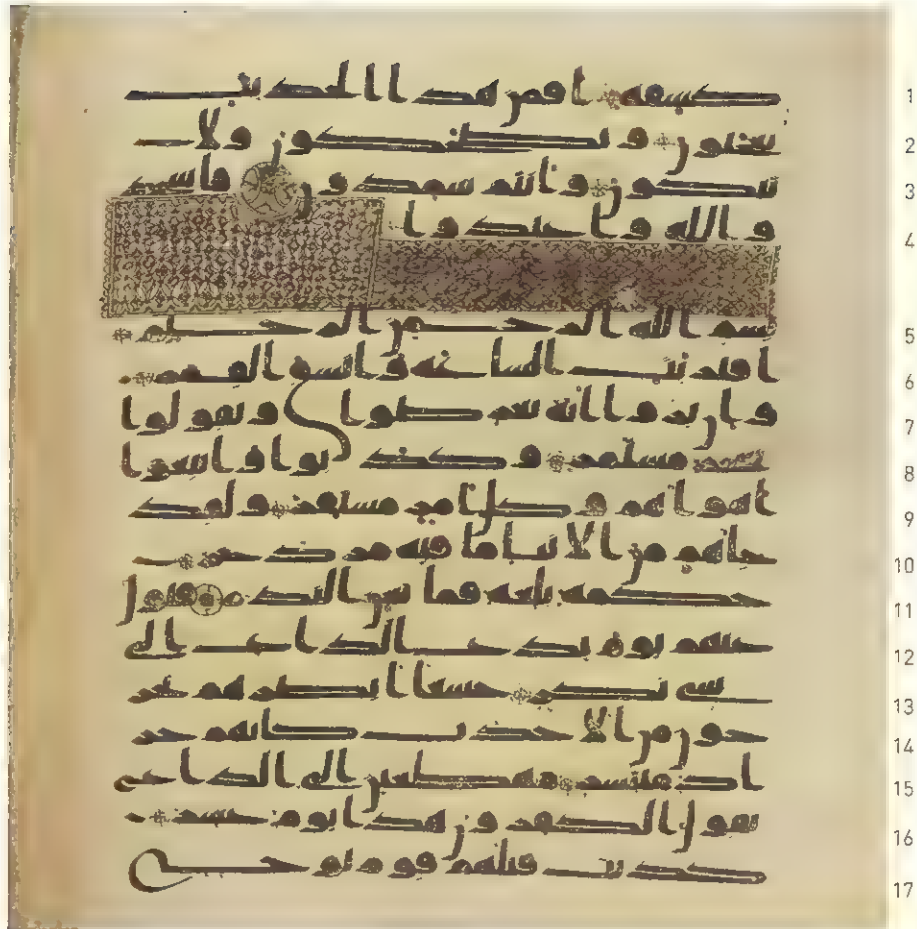 1 كشفة افمن هذا الحديث
2 تعجبون وتضحكون ولا
3 تبكون وانتم سمدون فاسجد
4 وا لله واعبدوا
5 بسم الله الرحمن الرحيم
6 اقتربت الساعة وانشق القمر
7 وان يروا اية يعرضوا ويقولوا
8 سحر مستمر وكذبوا واتبعوا
9 اهواهم وكل امر مستقر ولقد
10 جاهم من الانبا ما فيه مزدجر
11 حكمة بلغة فما تغن النذر فتول
12 عنهم يوم يدع الداع الى
13 شي نكر خشعا ابصرهم يخر
14 جون من الاجداث كانهم جر
15 اد منتشر مهطعين الى الداع
16 يقول الكفرون هذا يوم عسر
17 كذبت قبلهم قوم نوح